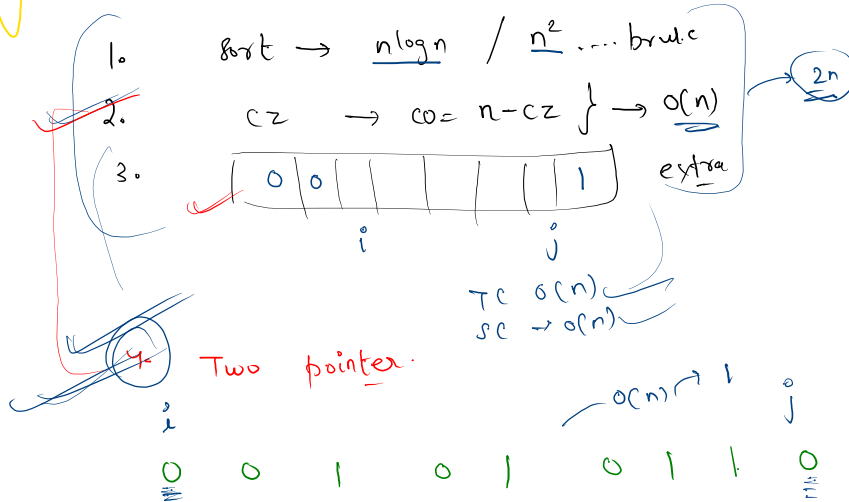 1. sort → nlogn / n² .... brute
2n
2. cz → co = n-cz } → O(n)
3. 0 0 1 extra
i j
TC O(n)
SC → O(n)
4. Two pointer.
O(n) → 1
i j
0 0 1 0 1 0 1 1 0